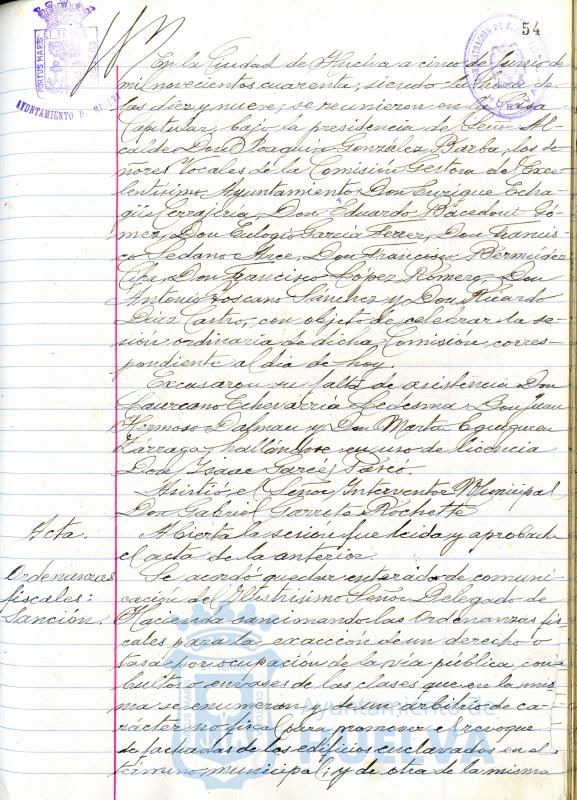 54
En la Ciudad de Huelva a cinco de Junio de
mil novecientos cuarenta, siendo la hora de
las diez y nueve, se reunieron en la Casa
Capitular, bajo la presidencia del Señor Al-
calde Don Joaquín González Barba, los Se-
ñores Vocales de la Comisión Gestora del Exce-
lentísimo Ayuntamiento Don Enrique Echa-
güe Cerrajería, Don Eduardo Bacedoni Gó-
mez, Don Eulogio García Ferrer, Don Francis-
co Sedano Arce, Don Francisco Bermúdez
Don Francisco López Romero, Don
Antonio Toscano Sánchez y Don Ricardo
Díaz Castro, con objeto de celebrar la se-
sión ordinaria de dicha Comisión corres-
pondiente al día de hoy.
Excusaron su falta de asistencia Don
Laureano Echevarría Ledesma, Don Juan
Hermoso Dalmau y Don Martín Eguiguren
Zárraga, hallándose en uso de licencia
Don Isaac Garcés Pascó
Asistió el Señor Interventor Municipal
Don Gabriel Garrito Rochette
Acta. Abierta la sesión fue leída y aprobada
el acta de la anterior.
Ordenanzas Se acordó quedar enterado de comuni-
fiscales: cación del Ilustrísimo Señor Delegado de
Sanción. Hacienda sancionando las Ordenanzas fis-
cales para la exacción de un derecho o
tasa por ocupación de la vía pública con
bultos o envases de las clases que en la mis-
ma se enumeran y de un arbitrio de ca-
rácter no fiscal para promover el revoque
de fachadas de los edificios enclavados en el
término municipal; y de otra de la misma
AYUNTAMIENTO DE HUELVA
Ayuntamiento de
HUELVA